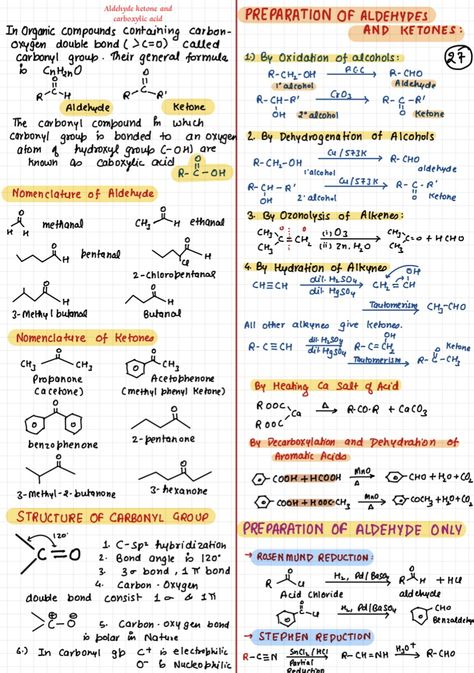 Aldehyde ketone and
carboxylic acid
In Organic compounds containing carbon-
oxygen double bond (>C=O) called
carbonyl group. Their general formula
is CnH2nO
O
R-C-H
Aldehyde
O
R-C-R'
Ketone
The carbonyl compound in which
carbonyl group is bonded to an oxygen
atom of hydroxyl group (-OH) are
known as caboxylic acid
O
R-C-OH
Nomenclature of Aldehyde
methanal
CH3 ethanal
pentanal
2-chloropentanal
3-Methyl butanal
Butanal
Nomenclature of Ketones
CH3 CH3
Propanone
(acetone)
CH3
Acetophenone
(methyl phenyl Ketone)
benzophenone
2-pentanone
3-Methyl-2-butanone
3-hexanone
STRUCTURE OF CARBONYL GROUP
120°
C=O
1. C-sp² hybridization
2. Bond angle is 120°
3. 3σ bond, 1π bond
4. Carbon-Oxygen
double bond consist 1σ & 1π
5. Carbon-oxygen bond
is polar in Nature
6.) In Carbonyl gp C+ is electrophilic
O- is Nucleophilic
PREPARATION OF ALDEHYDES
AND KETONES:
27
1.) By Oxidation of alcohols:
R-CH2-OH P.C.C R-CHO
1° alcohol Aldehyde
R-CH-R' CrO3 R-C-R'
OH O
2° alcohol Ketone
2. By Dehydrogenation of Alcohols
R-CH2-OH Cu/573K R-CHO
1°alcohol aldehyde
R-CH-R' Cu/573K R-C-R'
OH 2°alcohol Ketone
3. By Ozonolysis of Alkenes:
(i) O3
(ii) Zn, H2O
+ HCHO
4. By Hydration of Alkynes
CH≡CH dil. H2SO4 CH2=CH
dil. HgSO4
OH
Tautomerism CH3-CHO
All other alkynes give Ketones.
R-C≡CH dil. H2SO4 R-C=CH2
dil HgSO4 OH
Tautomerism R-C-CH3
Ketone
By Heating Ca Salt of Acid
ROOC
ROOC Ca Δ R-CO-R + CaCO3
By Decarboxylation and Dehydration of
Aromatic Acids
COOH + HCOOH MnO Δ CHO + H2O + CO2
COOH + HOOC CH3 MnO Δ COCH3 + H2O + CO2
PREPARATION OF ALDEHYDE ONLY
→ ROSENMUND REDUCTION:
R Cl H2, Pd/BaSO4 R H + HCl
Acid Chloride aldehyde
Cl H2, Pd/BaSO4 CHO
Benzaldehyde
→ STEPHEN REDUCTION
R-C≡N SnCl2/HCl R-CH=NH H3O+ R-CHO
Partial
Reduction